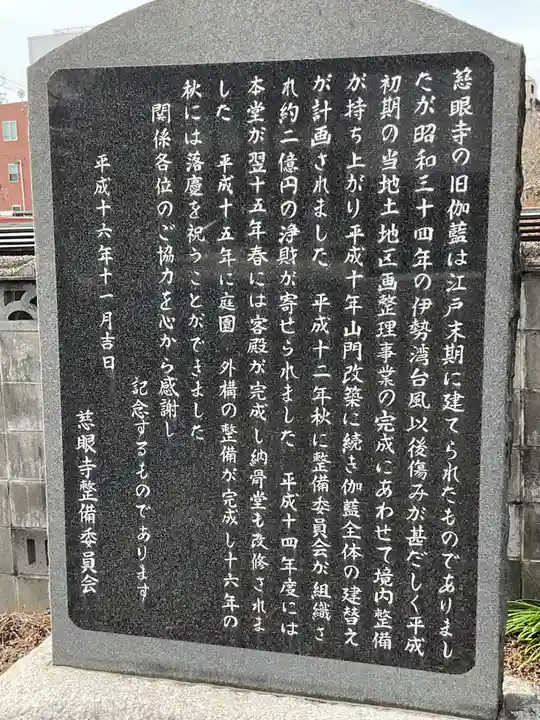 慈眼寺の旧伽藍は江戸末期に建てられたものでありまし
たが昭和三十四年の伊勢湾台風以後傷みが甚だしく平成
初期の当地土地区画整理事業の完成にあわせて境内整備
が持ち上がり平成十年山門改築に続き伽藍全体の建替え
が計画されました 平成十二年秋に整備委員会が組織さ
れ約二億円の浄財が寄せられました 平成十四年度には
本堂が翌十五年春には客殿が完成し納骨堂も改修されま
した 平成十五年に庭園 外構の整備が完成し十六年の
秋には落慶を祝うことができました
関係各位のご協力を心から感謝し
記念するものであります
平成十六年十一月吉日
慈眼寺整備委員会